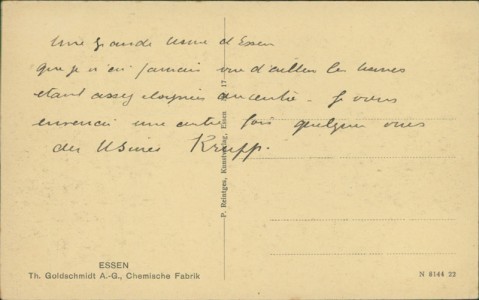 Une grande usine d'Essen
que je n'ai jamais vue d'ailleurs les usines
étant assez éloignées du centre. Je vous
enverrai une autre fois quelques vues
des Usines Krupp.
P. Reintges, Kunstverlag, Essen 17
ESSEN
Th. Goldschmidt A.-G., Chemische Fabrik
N 8144 22